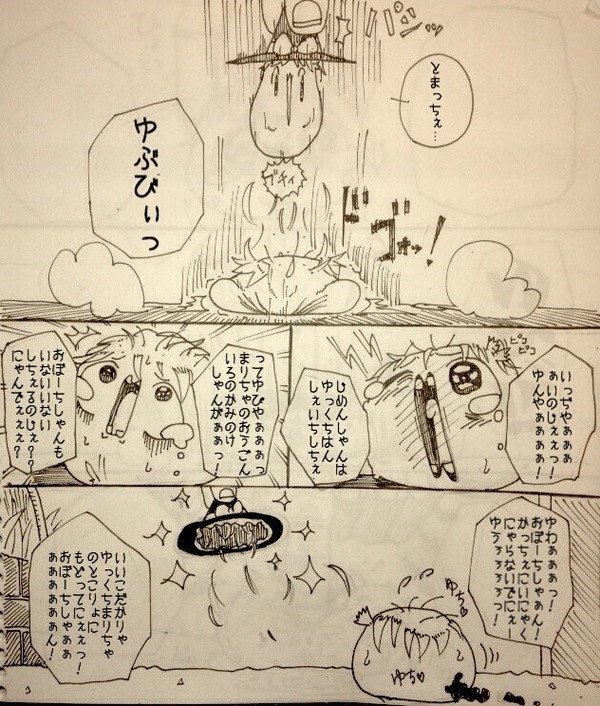 パンッ
とまっちぇ…
ゆぶびぃっ
ブキィ
ドゴォッ!
ピコ
ピコ
いっちやぁぁぁ
あいのじぇぇっ!
ゆんやぁぁぁ!
じめんしゃんは
ゆっくちはん
しぇいちしちぇ
ってゆぴゃぁぁぁっ
まりちゃのおうごん
いろのかみのけ
しゃんがぁぁっ!
おぼーちしゃんも
いないいない
しちぇるのじぇ??
にゃんでぇぇぇ?
ゆわぁぁぁっ!
おぼーちしゃぁん!
かっちぇにいにゃく
にゃらないでにぇー
ゆぅぅぅっ!
ゆちっ
いいこだがりゃ
ゆっくちまりちゃ
のとこりょに
もどってにぇぇっ!
おぼーちしゃぁぁ
ぁぁぁぁぁぁん!
ゆちっ